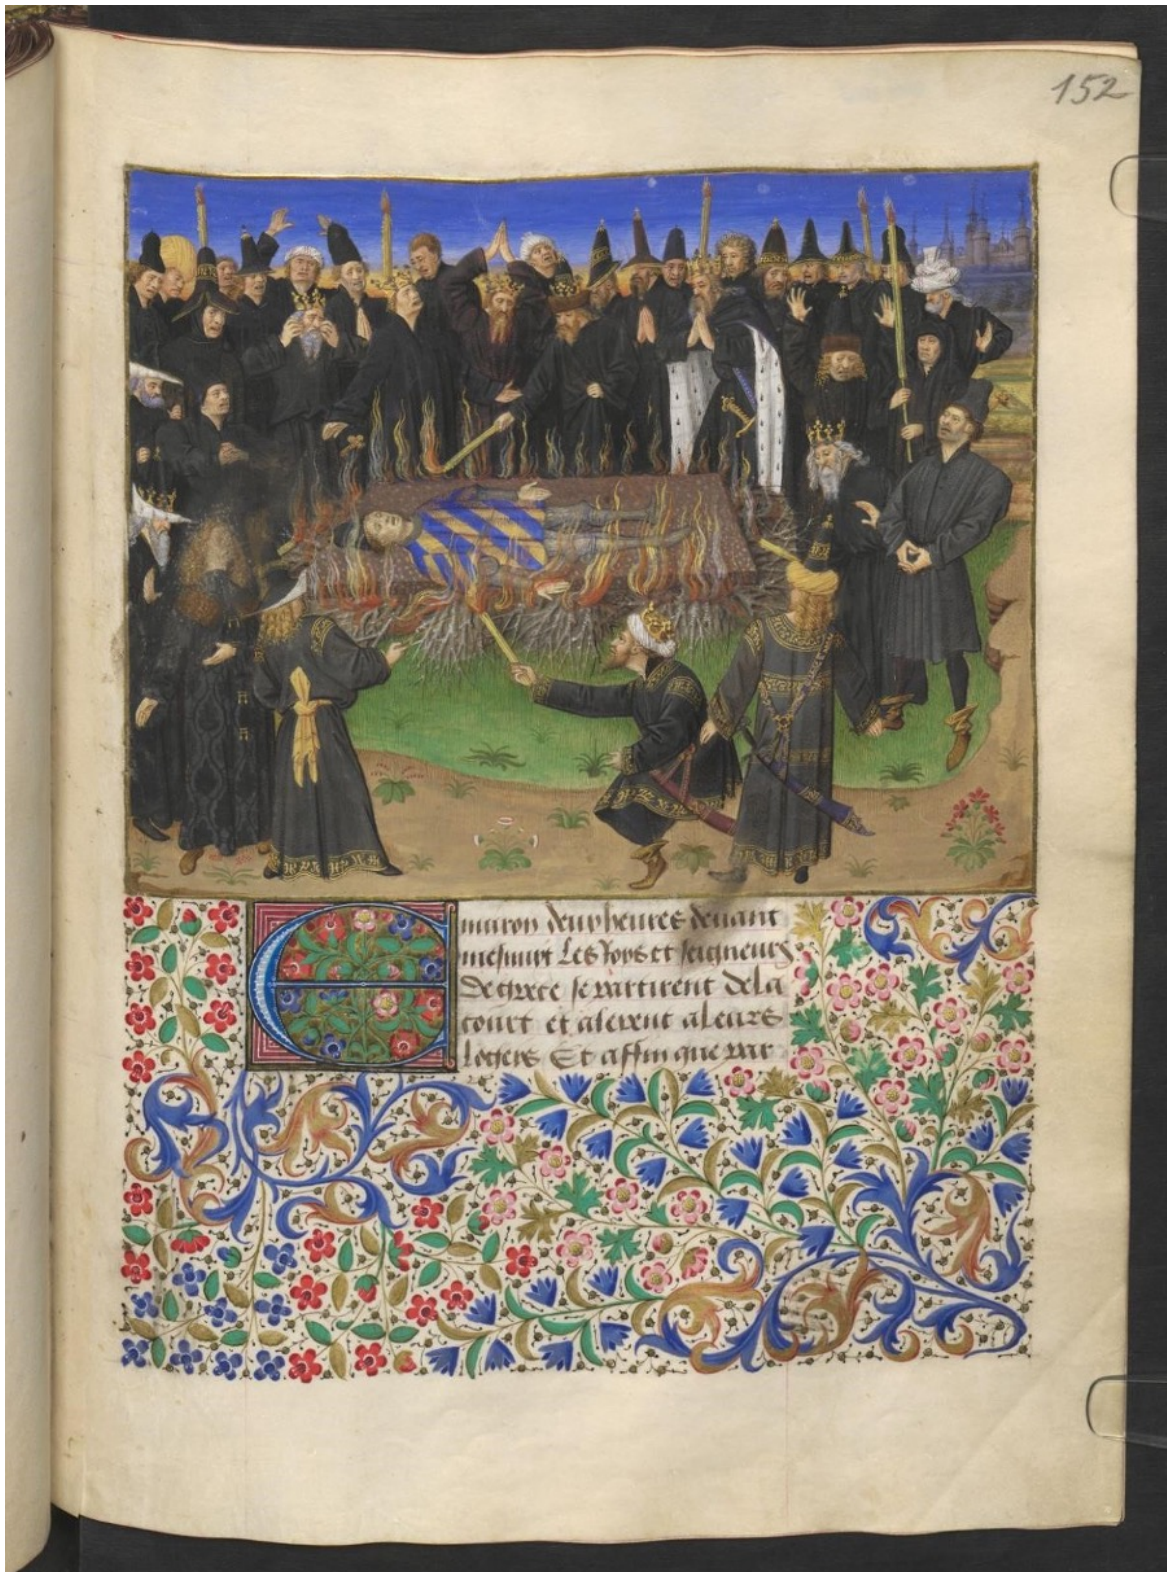 152
Enuiron deux heures deuant
mesnuit Les Roys et seigneurs
de grece se partirent de la
court et alerent a leurs
logeis Et affin que par